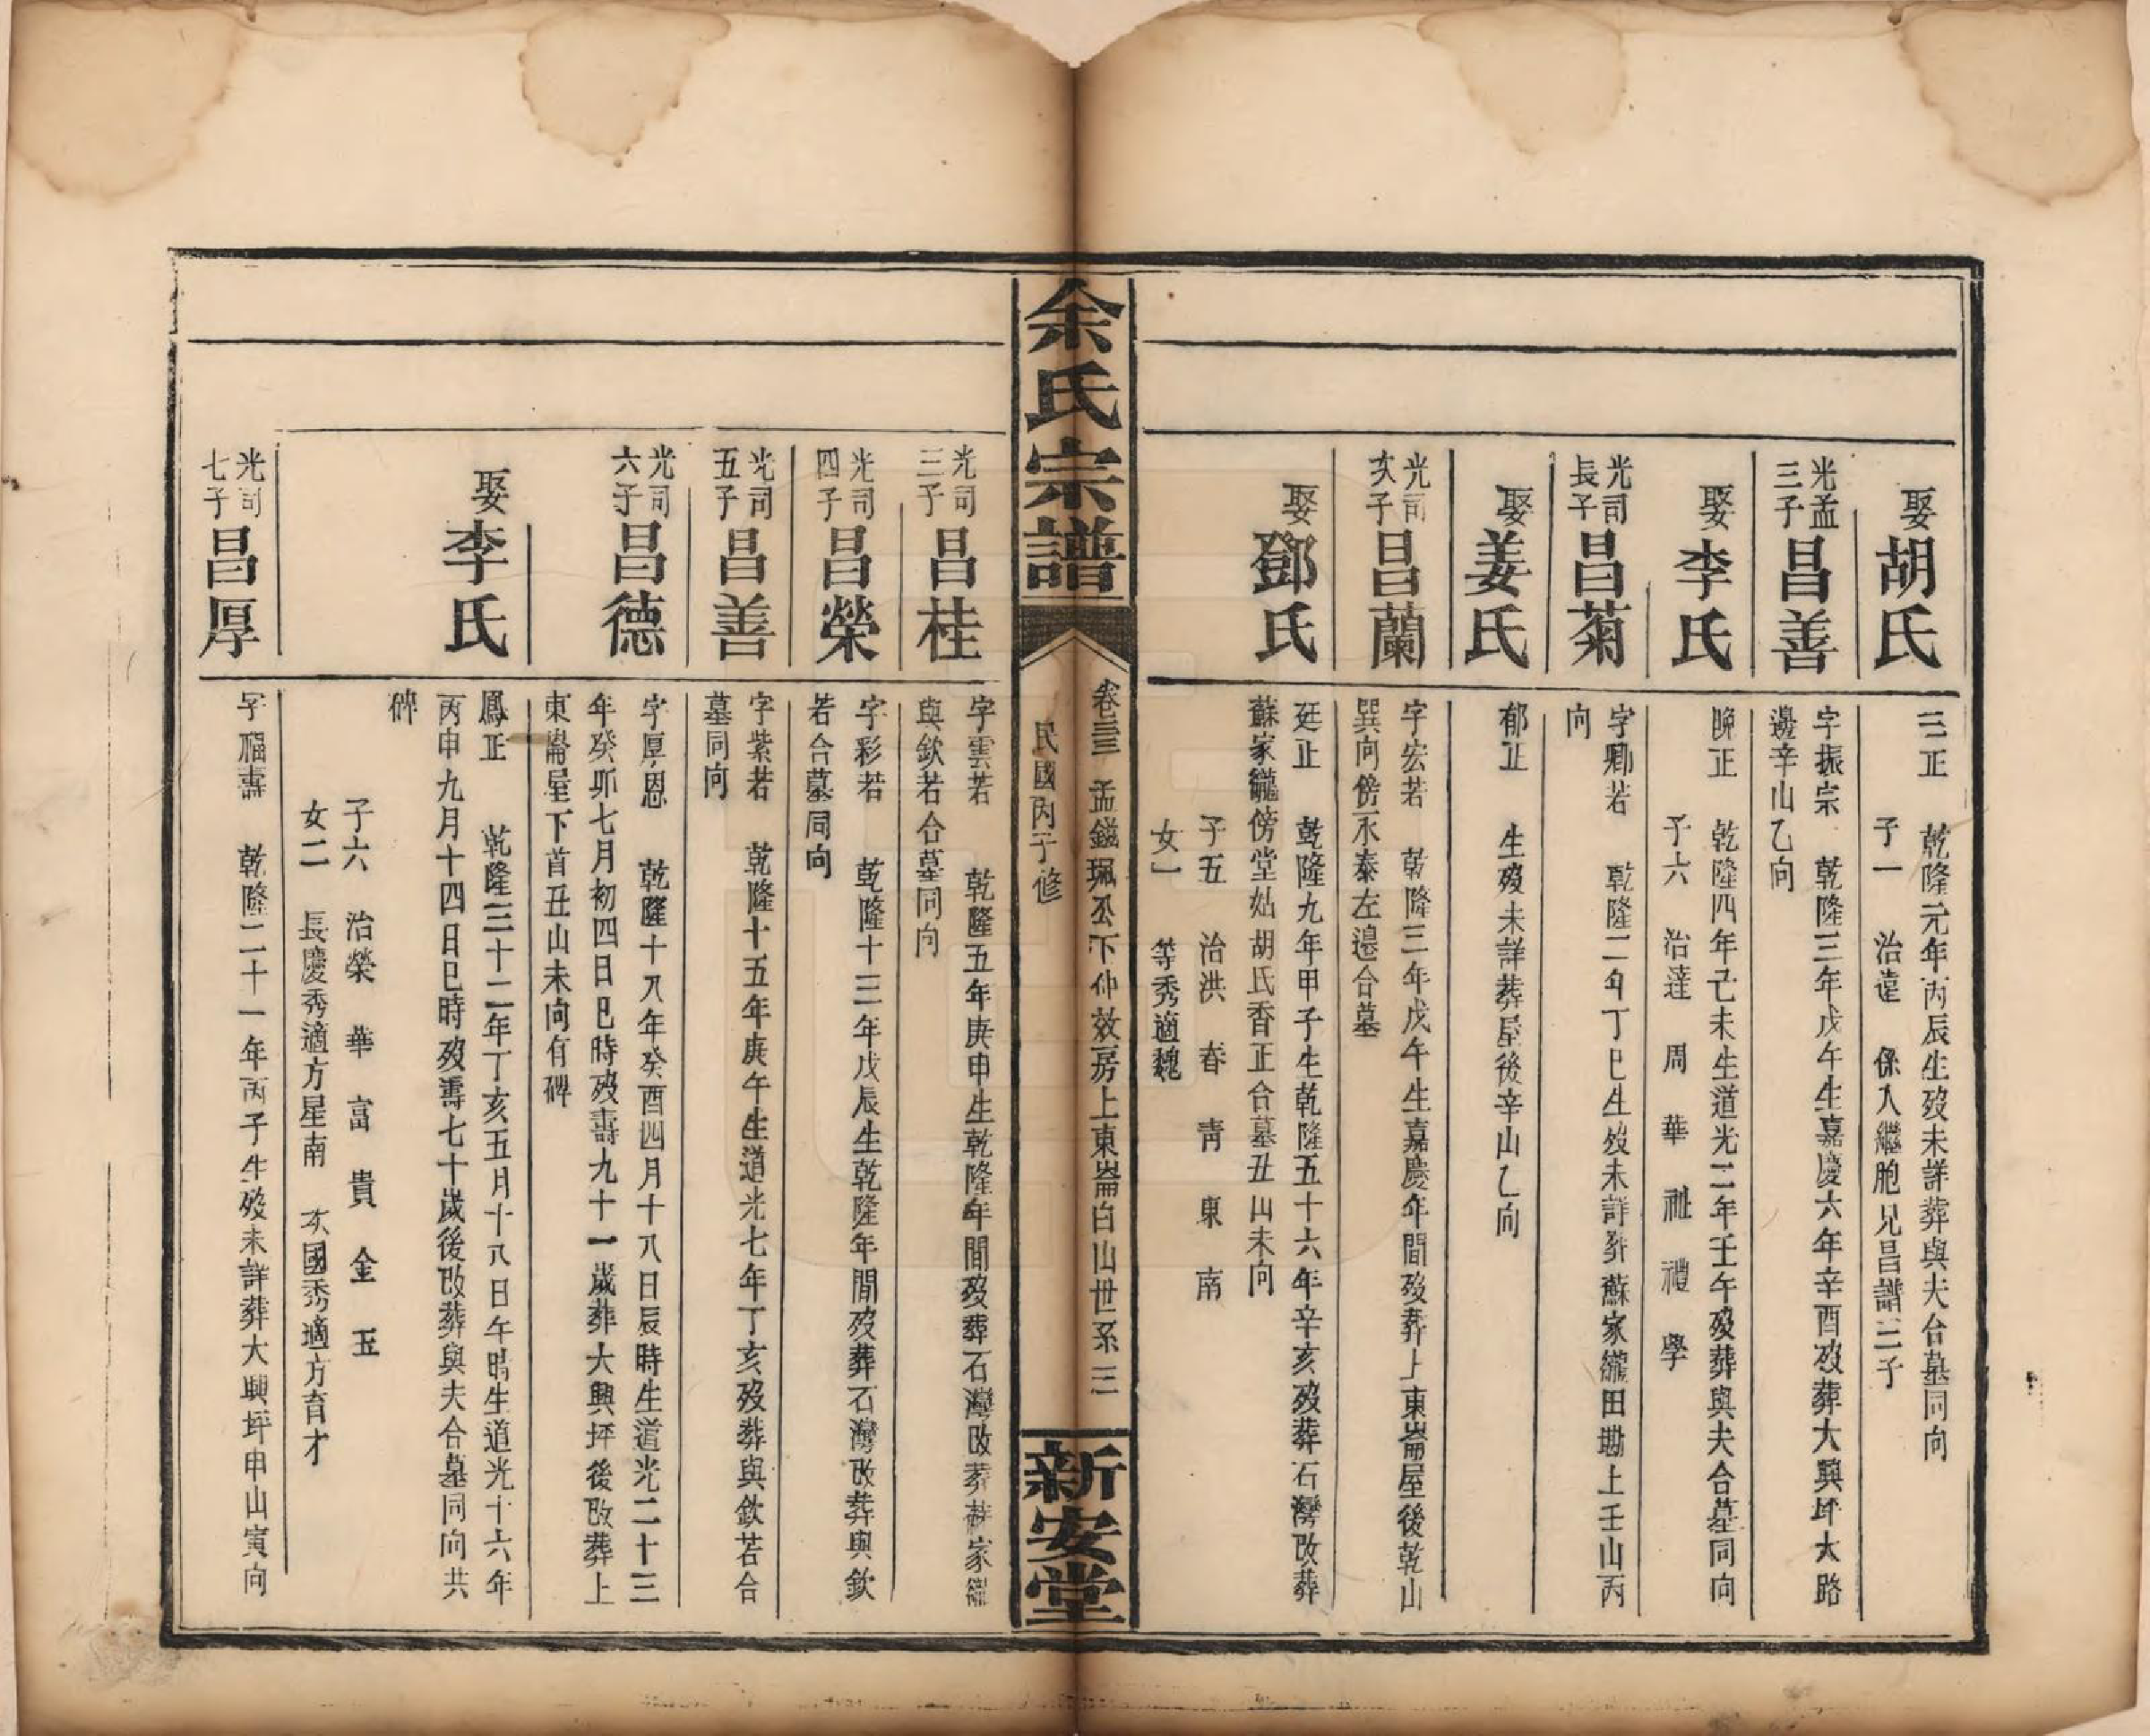 娶胡氏
三正　乾隆元年丙辰生歿未詳葬與夫合墓同向
子一　治達　係入繼胞兄昌譜三子
光孟三子昌善
字振宗　乾隆三年戊午生嘉慶六年辛酉歿葬大興坪大路
邊辛山乙向
娶李氏
晚正　乾隆四年己未生道光二年壬午歿葬與夫合墓同向
子六　治達　周　華　祉　禮　學
光司長子昌菊
字卿若　乾隆二年丁巳生歿未詳葬蘇家巃田墈上壬山丙
向
娶姜氏
郁正　生歿未詳葬屋後辛山乙向
光司次子昌蘭
字宏若　乾隆三年戊午生嘉慶年間歿葬上東崙屋後乾山
巽向傍永泰左邉合墓
娶鄧氏
廷正　乾隆九年甲子生乾隆五十六年辛亥歿葬石灣改葬
蘇家巃傍堂姑胡氏香正合墓丑山未向
子五　治洪　春　青　東　南
女一　等秀適魏
余氏宗譜
卷三三　孟鎡珮公下仲效房上東崙白山世系　三
民國丙子修
新安堂
光司三子昌桂
字雲若　乾隆五年庚申生乾隆年間歿葬石灣改葬蘇家巃
與欽若合墓同向
光司四子昌榮
字彩若　乾隆十三年戊辰生乾隆年間歿葬石灣改葬與欽
若合墓同向
光司五子昌善
字紫若　乾隆十五年庚午生道光七年丁亥歿葬與欽若合
墓同向
光司六子昌德
字厚恩　乾隆十八年癸酉四月十八日辰時生道光二十三
年癸卯七月初四日巳時歿壽九十一歲葬大興坪後改葬上
東崙屋下首丑山未向有碑
娶李氏
鳳正　乾隆三十二年丁亥五月十八日午時生道光十六年
丙申九月十四日巳時歿壽七十歲後改葬與夫合墓同向共
碑
子六　治榮　華　富　貴　金　玉
女二　長慶秀適方星南　次國秀適方育才
光司七子昌厚
字福壽　乾隆二十一年丙子生歿未詳葬大興坪申山寅向